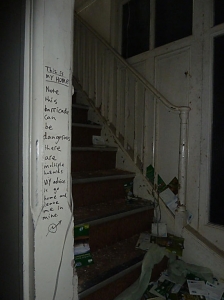 THIS IS
MY HOME
Note
this
barricade
can
be
dangerous
there
are
multiple
hazards
My advice
is go
home and
leave
me in
mine